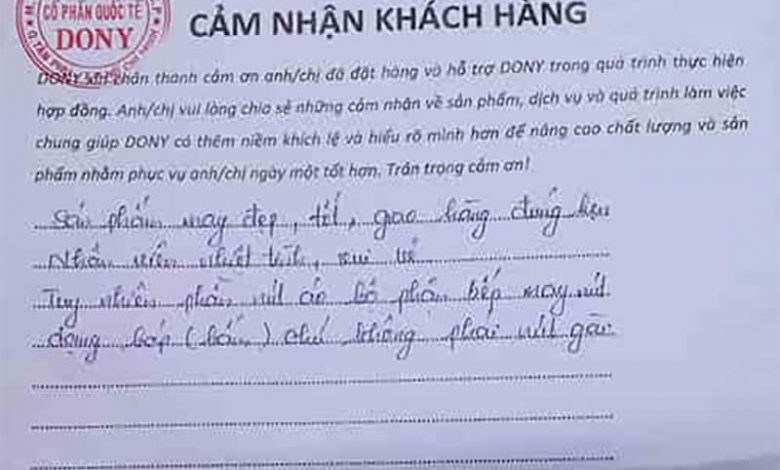 CỔ PHẦN QUỐC TẾ
DONY
CẢM NHẬN KHÁCH HÀNG
DONY xin chân thành cảm ơn anh/chị đã đặt hàng và hỗ trợ DONY trong quá trình thực hiện
hợp đồng. Anh/chị vui lòng chia sẻ những cảm nhận về sản phẩm, dịch vụ và quá trình làm việc
chung giúp DONY có thêm niềm khích lệ và hiểu rõ mình hơn để nâng cao chất lượng và sản
phẩm nhằm phục vụ anh/chị ngày một tốt hơn. Trân trọng cảm ơn!
Sản phẩm may đẹp, tốt, giao hàng đúng hẹn
Nhân viên nhiệt tình, vui vẻ
Tuy nhiên phần nút áo bộ phận bếp may nút
dạng bóp (bấm) chứ không phải nút gài